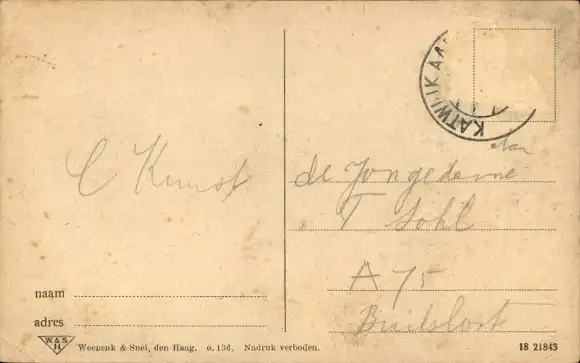 KATWIJK AA
Aan
C Kunst
de Jongedame
T Sohl
A 75
naam
adres
W. & S. H.
Weenenk & Snel, den Haag. o. 136. Nadruk verboden.
18 21843